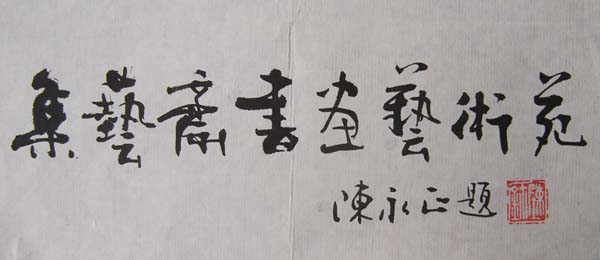 集藝齋書畫藝術苑
陳永正題